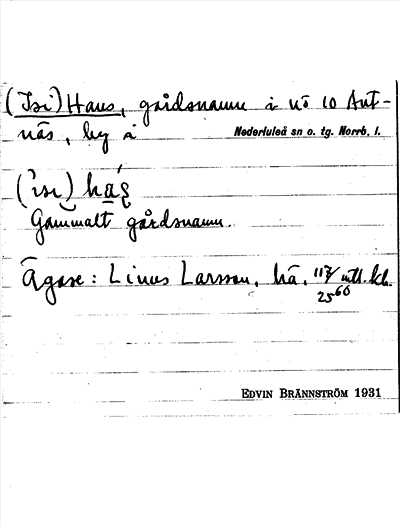 (Isi) Hans, gårdsnamn å nö 10 Ant-
näs, by å Nederluleå sn o. tg. Norrb. l.
(isi) 
Gammalt gårdsnamn.
Ägare: Linus Larsson, 
EDVIN BRÄNNSTRÖM 1931